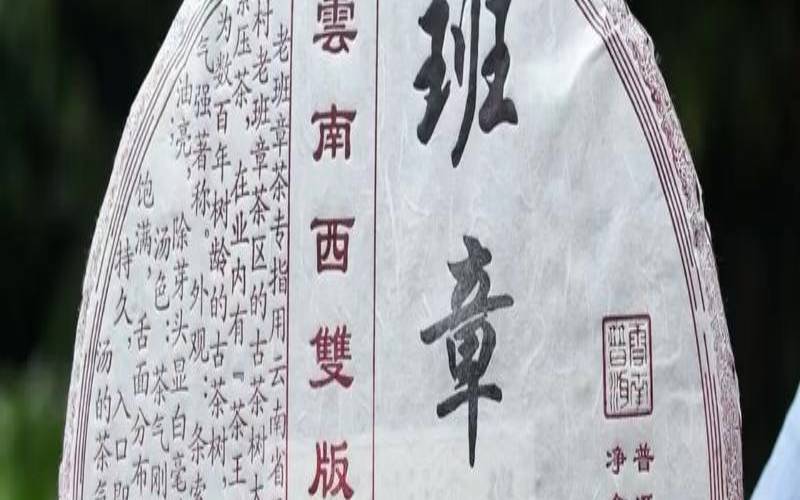 雲南
普洱
普
净
班章
雲南西雙版
老班章茶专指用云南省
村老班章茶区的古茶树大
压茶,在业内有“茶王
为数百年树龄的古茶树
气强著称。外观:条索
油亮,除芽头显白毫
汤色:茶气刚
饱满,舌面分布
持久,入口即
汤的茶气